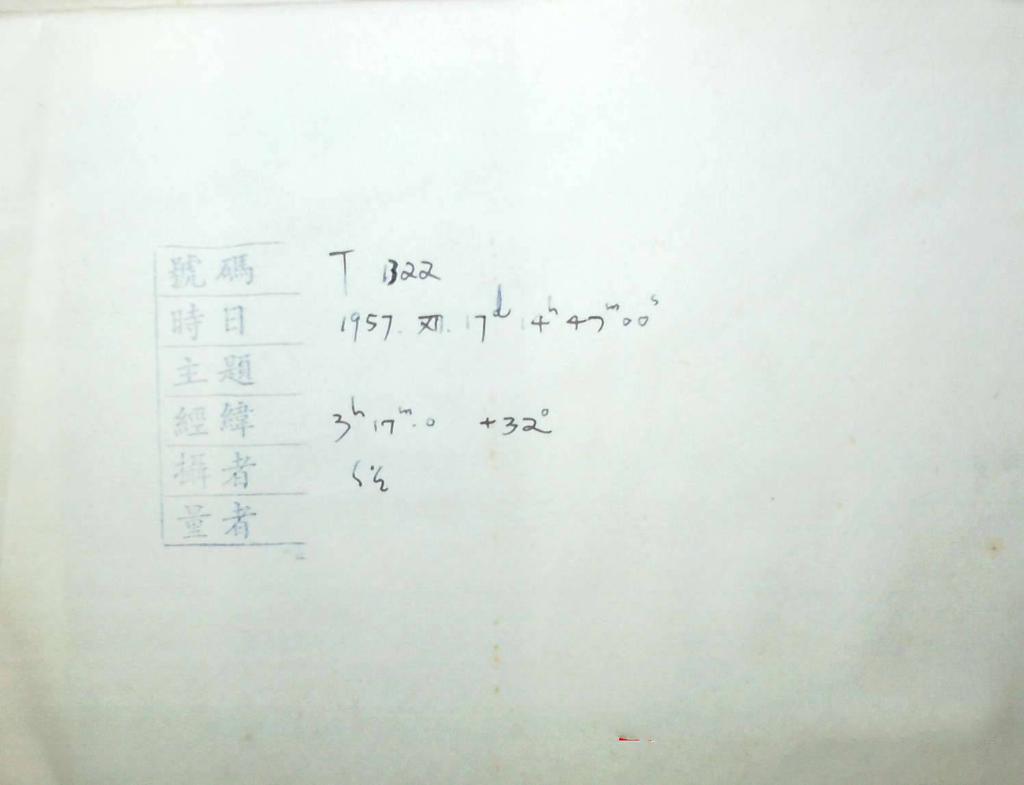 號碼 T 1322
時日 1957. XII. 17d 14h 47m 00s
主題
經緯 3h 17m.0 +32°
攝者
量者